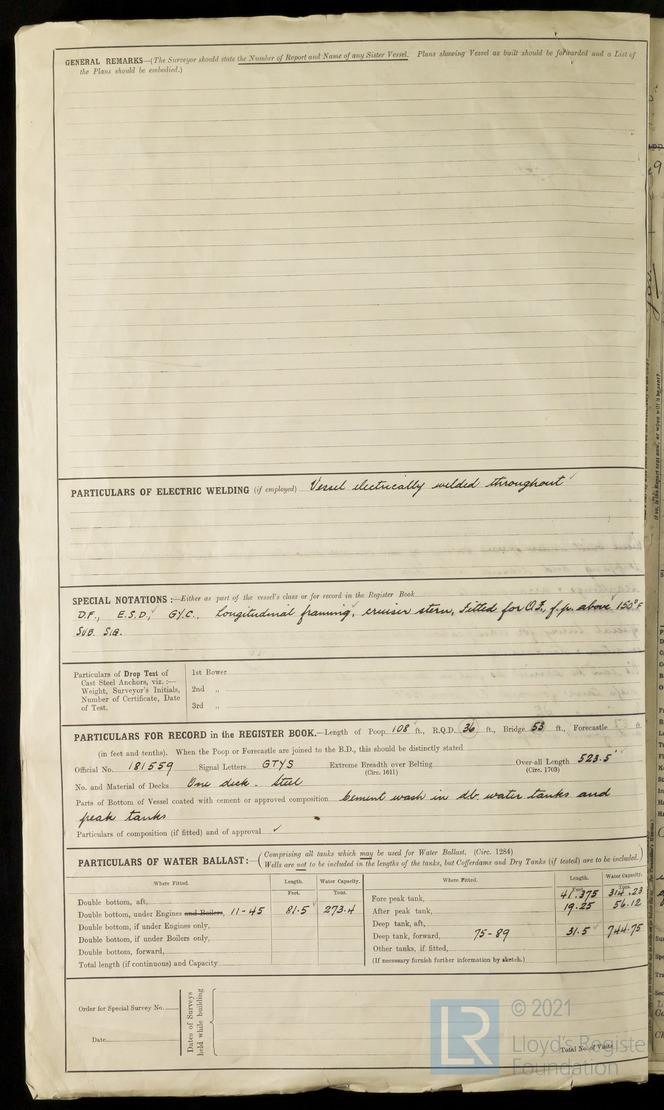 GENERAL REMARKS—(The Surveyor should state the Number of Report and Name of any Sister Vessel. Plans showing Vessel as built should be forwarded and a List of
the Plans should be embodied.)
PARTICULARS OF ELECTRIC WELDING (if employed) Vessel electrically welded throughout
SPECIAL NOTATIONS :—Either as part of the vessel's class or for record in the Register Book
D.F., E.S.D., GY.C., Longitudinal framing, cruiser stern, Fitted for O.F., f.p. above 150°F
SUB. SIG.
Particulars of Drop Test of
Cast Steel Anchors, viz. :—
Weight, Surveyor's Initials,
Number of Certificate, Date
of Test.
1st Bower
2nd „
3rd „
PARTICULARS FOR RECORD in the REGISTER BOOK.—Length of Poop 108 ft., R.Q.D. 36 ft., Bridge 53 ft., Forecastle ft.
(in feet and tenths). When the Poop or Forecastle are joined to the B.D., this should be distinctly stated
Official No. 181559 Signal Letters GTYS Extreme Breadth over Belting (Circ. 1611) Over-all Length (Circ. 1703) 523.5'
No. and Material of Decks One deck. Steel
Parts of Bottom of Vessel coated with cement or approved composition Cement wash in d.b. water tanks and
peak tanks
Particulars of composition (if fitted) and of approval ✓
PARTICULARS OF WATER BALLAST:—(Comprising all tanks which may be used for Water Ballast. (Circ. 1284)
Wells are not to be included in the lengths of the tanks, but Cofferdams and Dry Tanks (if tested) are to be included.)
Where Fitted. Length. Feet. Water Capacity. Tons.
Double bottom, aft,
Double bottom, under Engines and Boilers, 11-45 81.5 273.4
Double bottom, if under Engines only,
Double bottom, if under Boilers only,
Double bottom, forward,
Total length (if continuous) and Capacity
Where Fitted. Length. Feet. Water Capacity. Tons.
Fore peak tank, 41.375 314.23
After peak tank, 19.25 56.12
Deep tank, aft,
Deep tank, forward, 75-89 31.5 744.75
Other tanks, if fitted,
(If necessary furnish further information by sketch.)
Order for Special Survey No.
Date
Dates of Surveys
held while building
Total No. of Visits
LR
© 2021
Lloyd's Register
Foundation